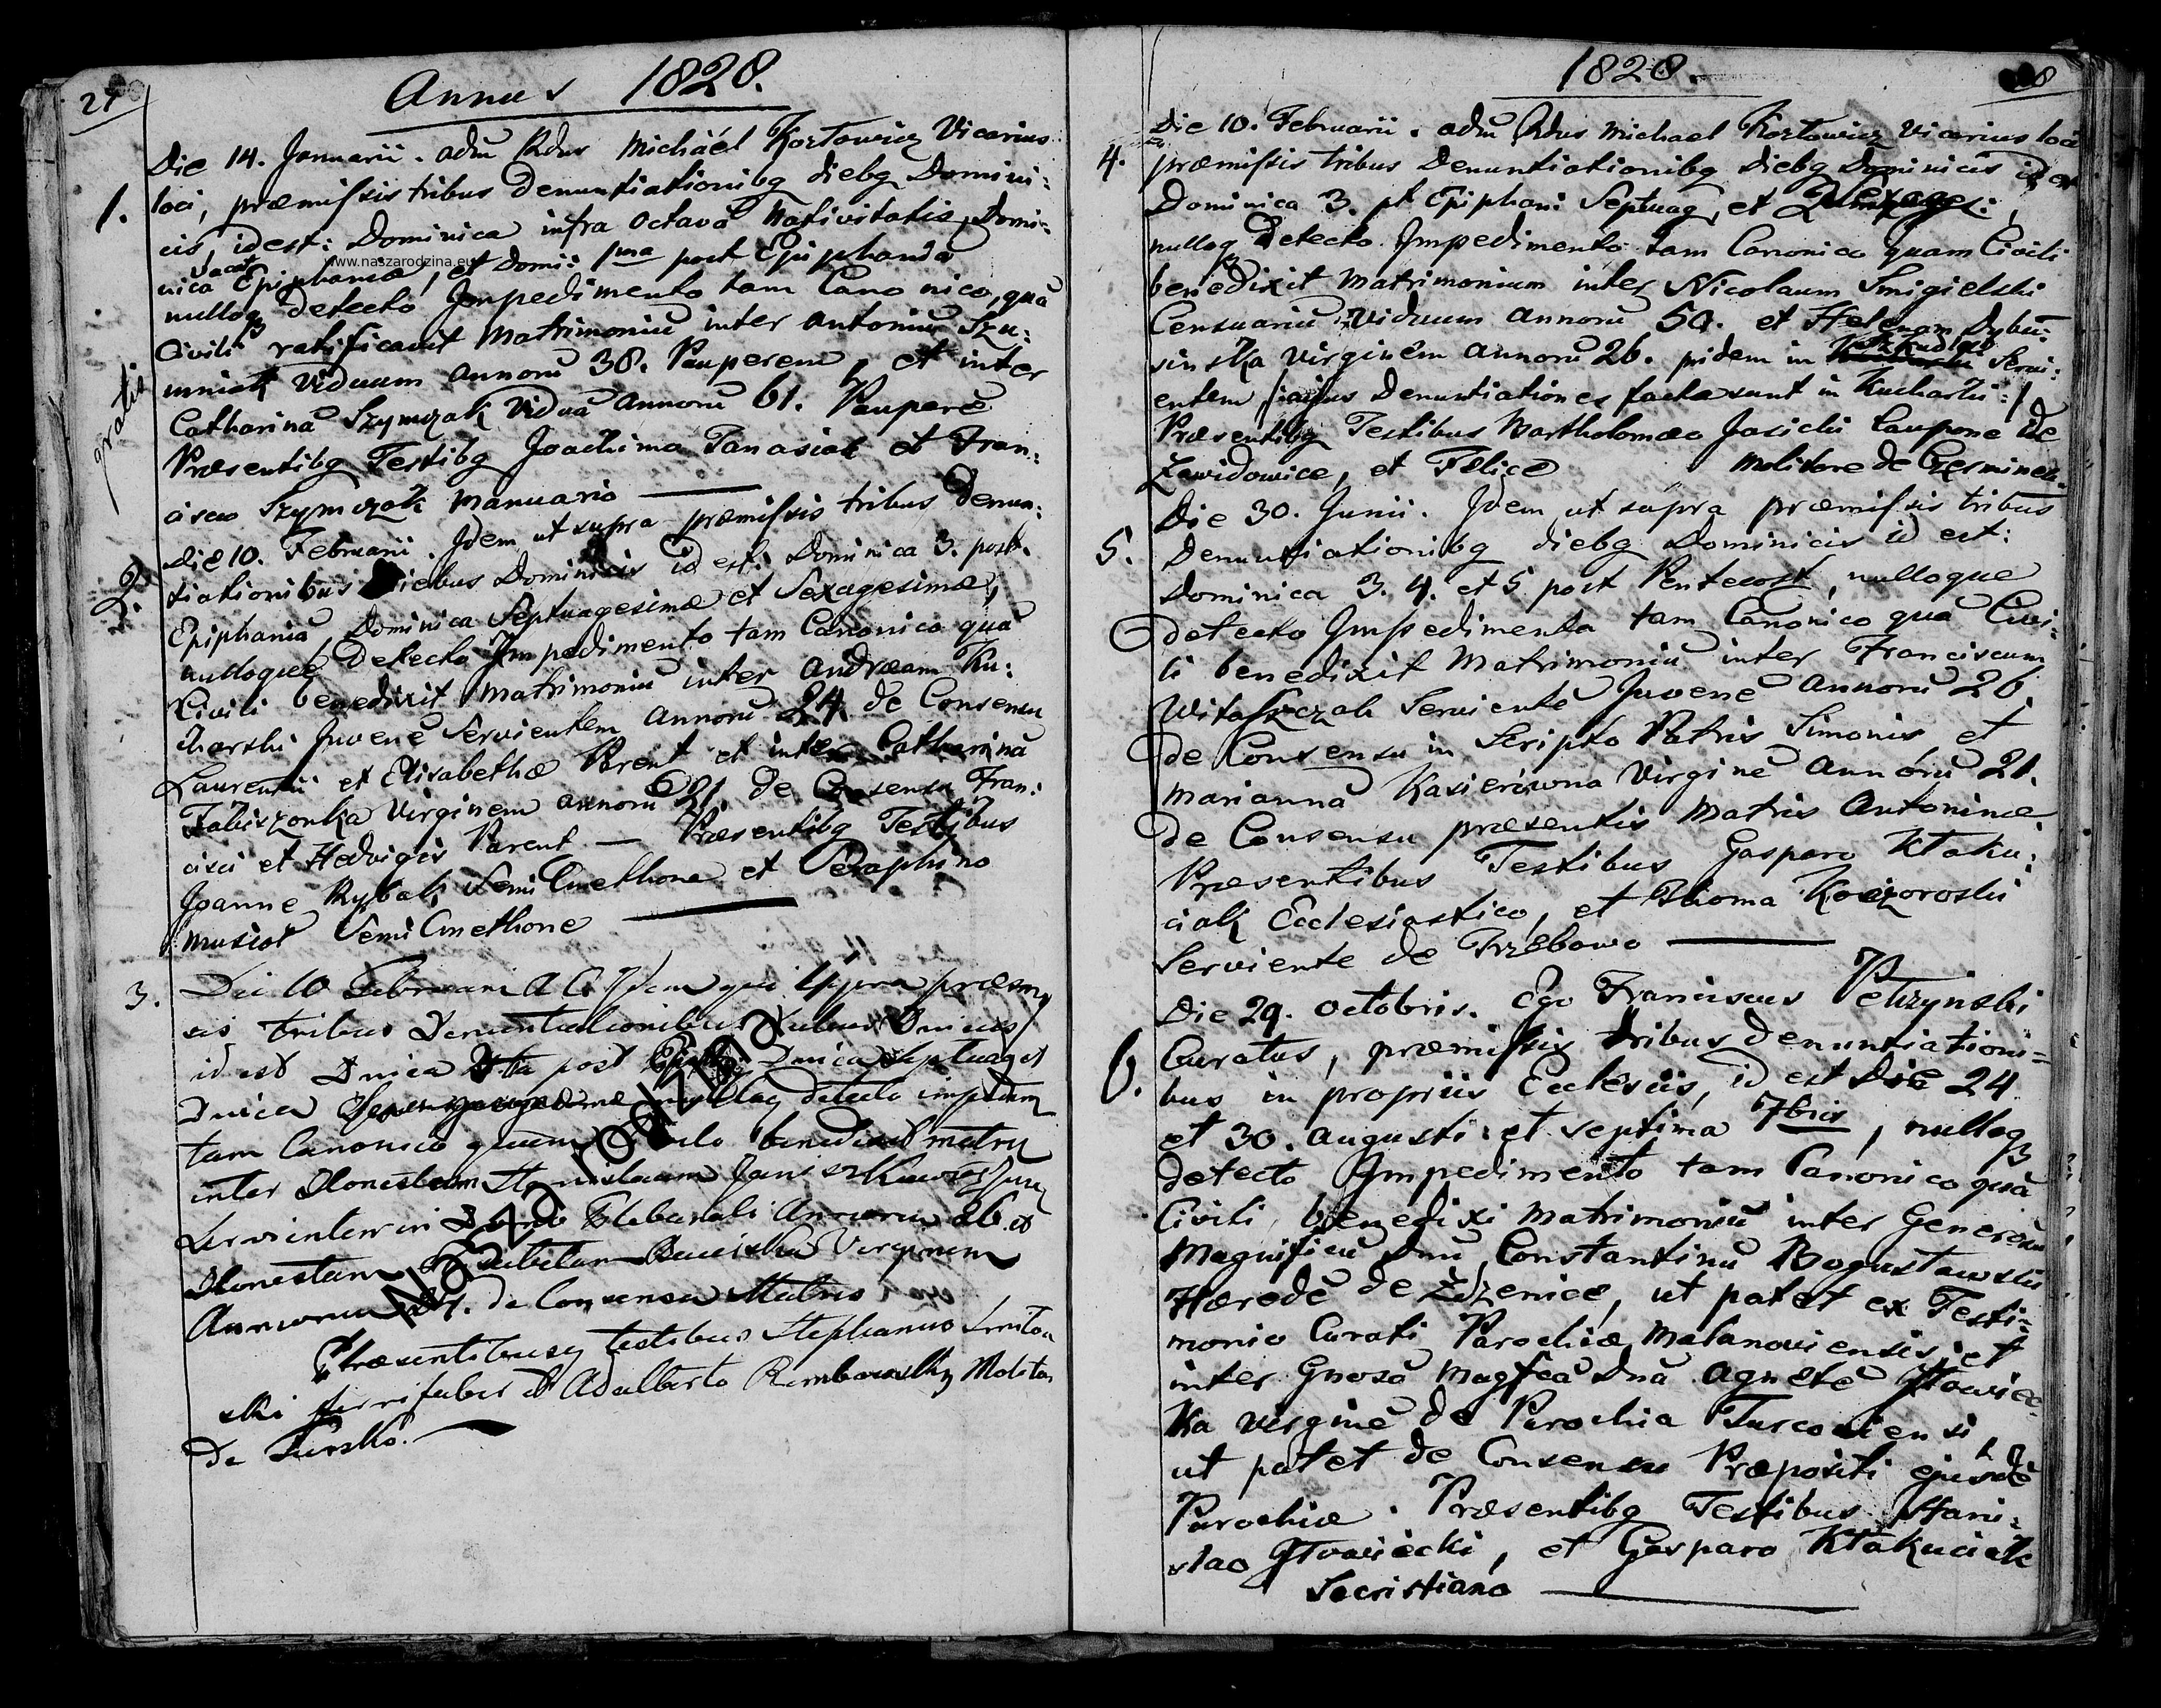 27
Annus 1828.
Die 14. Januarii. adm Rdus Michäel Kozłowicz Vicarius
1. loci, præmissis tribus Denuntiationibq diebq Domini:
cis, idest: Dominica infra Octavā Nativitatis, Domi:
nica vacat Epiphaniæ, et Domi: 1ma post Epiphaniā
www.naszarodzina.eu
nulloq Detecto Impedimento tam Canonico, quā
Civili ratificavit Matrimoniū inter Antoniū Szy:
mniak Viduum annorū 38. Pauperem, et inter
Catharinā Szymczak Viduā annorū 61. Pauperē
gratis
Præsentibq Testibq Joachimo Banasiak et Fran:
cisco Szymczak Manuario
2. Die 10. Februarii. Idem ut supra præmissis tribus Denun:
tiationibus Diebus Dominicis id est: Dominica 3. post
Epiphaniā, Dominica Septuagesimæ et Sexagesimæ,
nulloque Detecto Impedimento tam Canonico quā
Civili benedixit Matrimoniū inter Andream Ku:
charski Juvenē Servientem annorū 24. de Consensu
Laurentii et Elisabethæ Parent et inter Catharinā
Fabiszonka Virginem annorū 21. de Consensu Fran:
cisci et Hedvigis Parent — Præsentibq Testibus
Joanne Rybak Semi Cmethone et Seraphino
Musiał Semi Cmethone
3. Die 10 Februarii A C Idem qui supra præmis
sis tribus Denuntiationibus Diebus Dnicis
id est Dnica 3tia post Epiph: Dnica Septuages
Dnica nulloq detecto impedim
tam Canonico quam Civilo benedixit matrim
inter Honestum Stanislaum Juv
Servientem in Domo Plebanali Annorum 26. et
Honestam Virginem
Annorum 24. de Consensu Matris
Præsentibusq testibus Stephano
ski ferrifabro et Adalberto Rembowski Molitor
De Tursko.
Nasza rodzina
1828.
28
Die 10. Februarii. adm Rdus Michael Kozłowicz Vicarius loci
4. præmissis tribus Denuntiationibq diebq Dominicis id est
Dominica 3. pt Epiphani Septuag, et Sexages:,
nulloq Detecto Impedimento tam Canonico quam Civili
benedixit Matrimonium inter Nicolaum Smigielski
Censuariū Viduum annorū 50. et Helenam Dybu:
sinska Virginem annorū 26. pridem in Servi:
entem /: cujus Denuntiationes factæ sunt in Kucharki :/
Præsentibq Testibus Bartholomæo Jasicki Caupone de
Zawidowice, et Felice Molitore de Czerminek.
Die 30. Junii. Idem ut supra præmissis tribus
5. Denuntiationibq diebq Dominicis id est:
Dominica 3. 4. et 5 post Pentecost, nulloque
detecto Impedimento tam Canonico quā Civi:
li benedixit Matrimoniū inter Franciscum
Witaszczak Servientē Juvenē annorū 26.
de Consensu in Scripto Patris Simonis, et
Mariannā Kasierowna Virginē annorū 21.
de Consensu præsentis Matris Antoninæ.
Præsentibus Testibus Gasparo Kłaku:
ciak Ecclesiastico, et Thoma Kaczoroski
Serviente de Trzebowo
Die 29. Octobris. Ego Franciscus Petrzynski
6. Curatus, præmissis tribus denuntiationi=
bus in propriis Ecclesiis, id est Die 24
et 30. Augusti et septima 7bris, nulloq
detecto Impedimento tam Canonico quā
Civili, benedixi Matrimoniū inter Generosū
Magnificū Dnū Constantinū Bogusławski
Hæredē de Zdzenice, ut patet ex Testi=
monio Curati Parochiæ Malanoviensis, et
inter Gnosā Magfcā Dnā Agnetē Głowiec=
ka Virginē de Parochia Turcoviensi
ut patet de Consensu Præpositi ejusdē
Parochiæ. Præsentibq Testibus Stani:
slao Głowiecki, et Gasparo Kłakuciak
Sacristiano